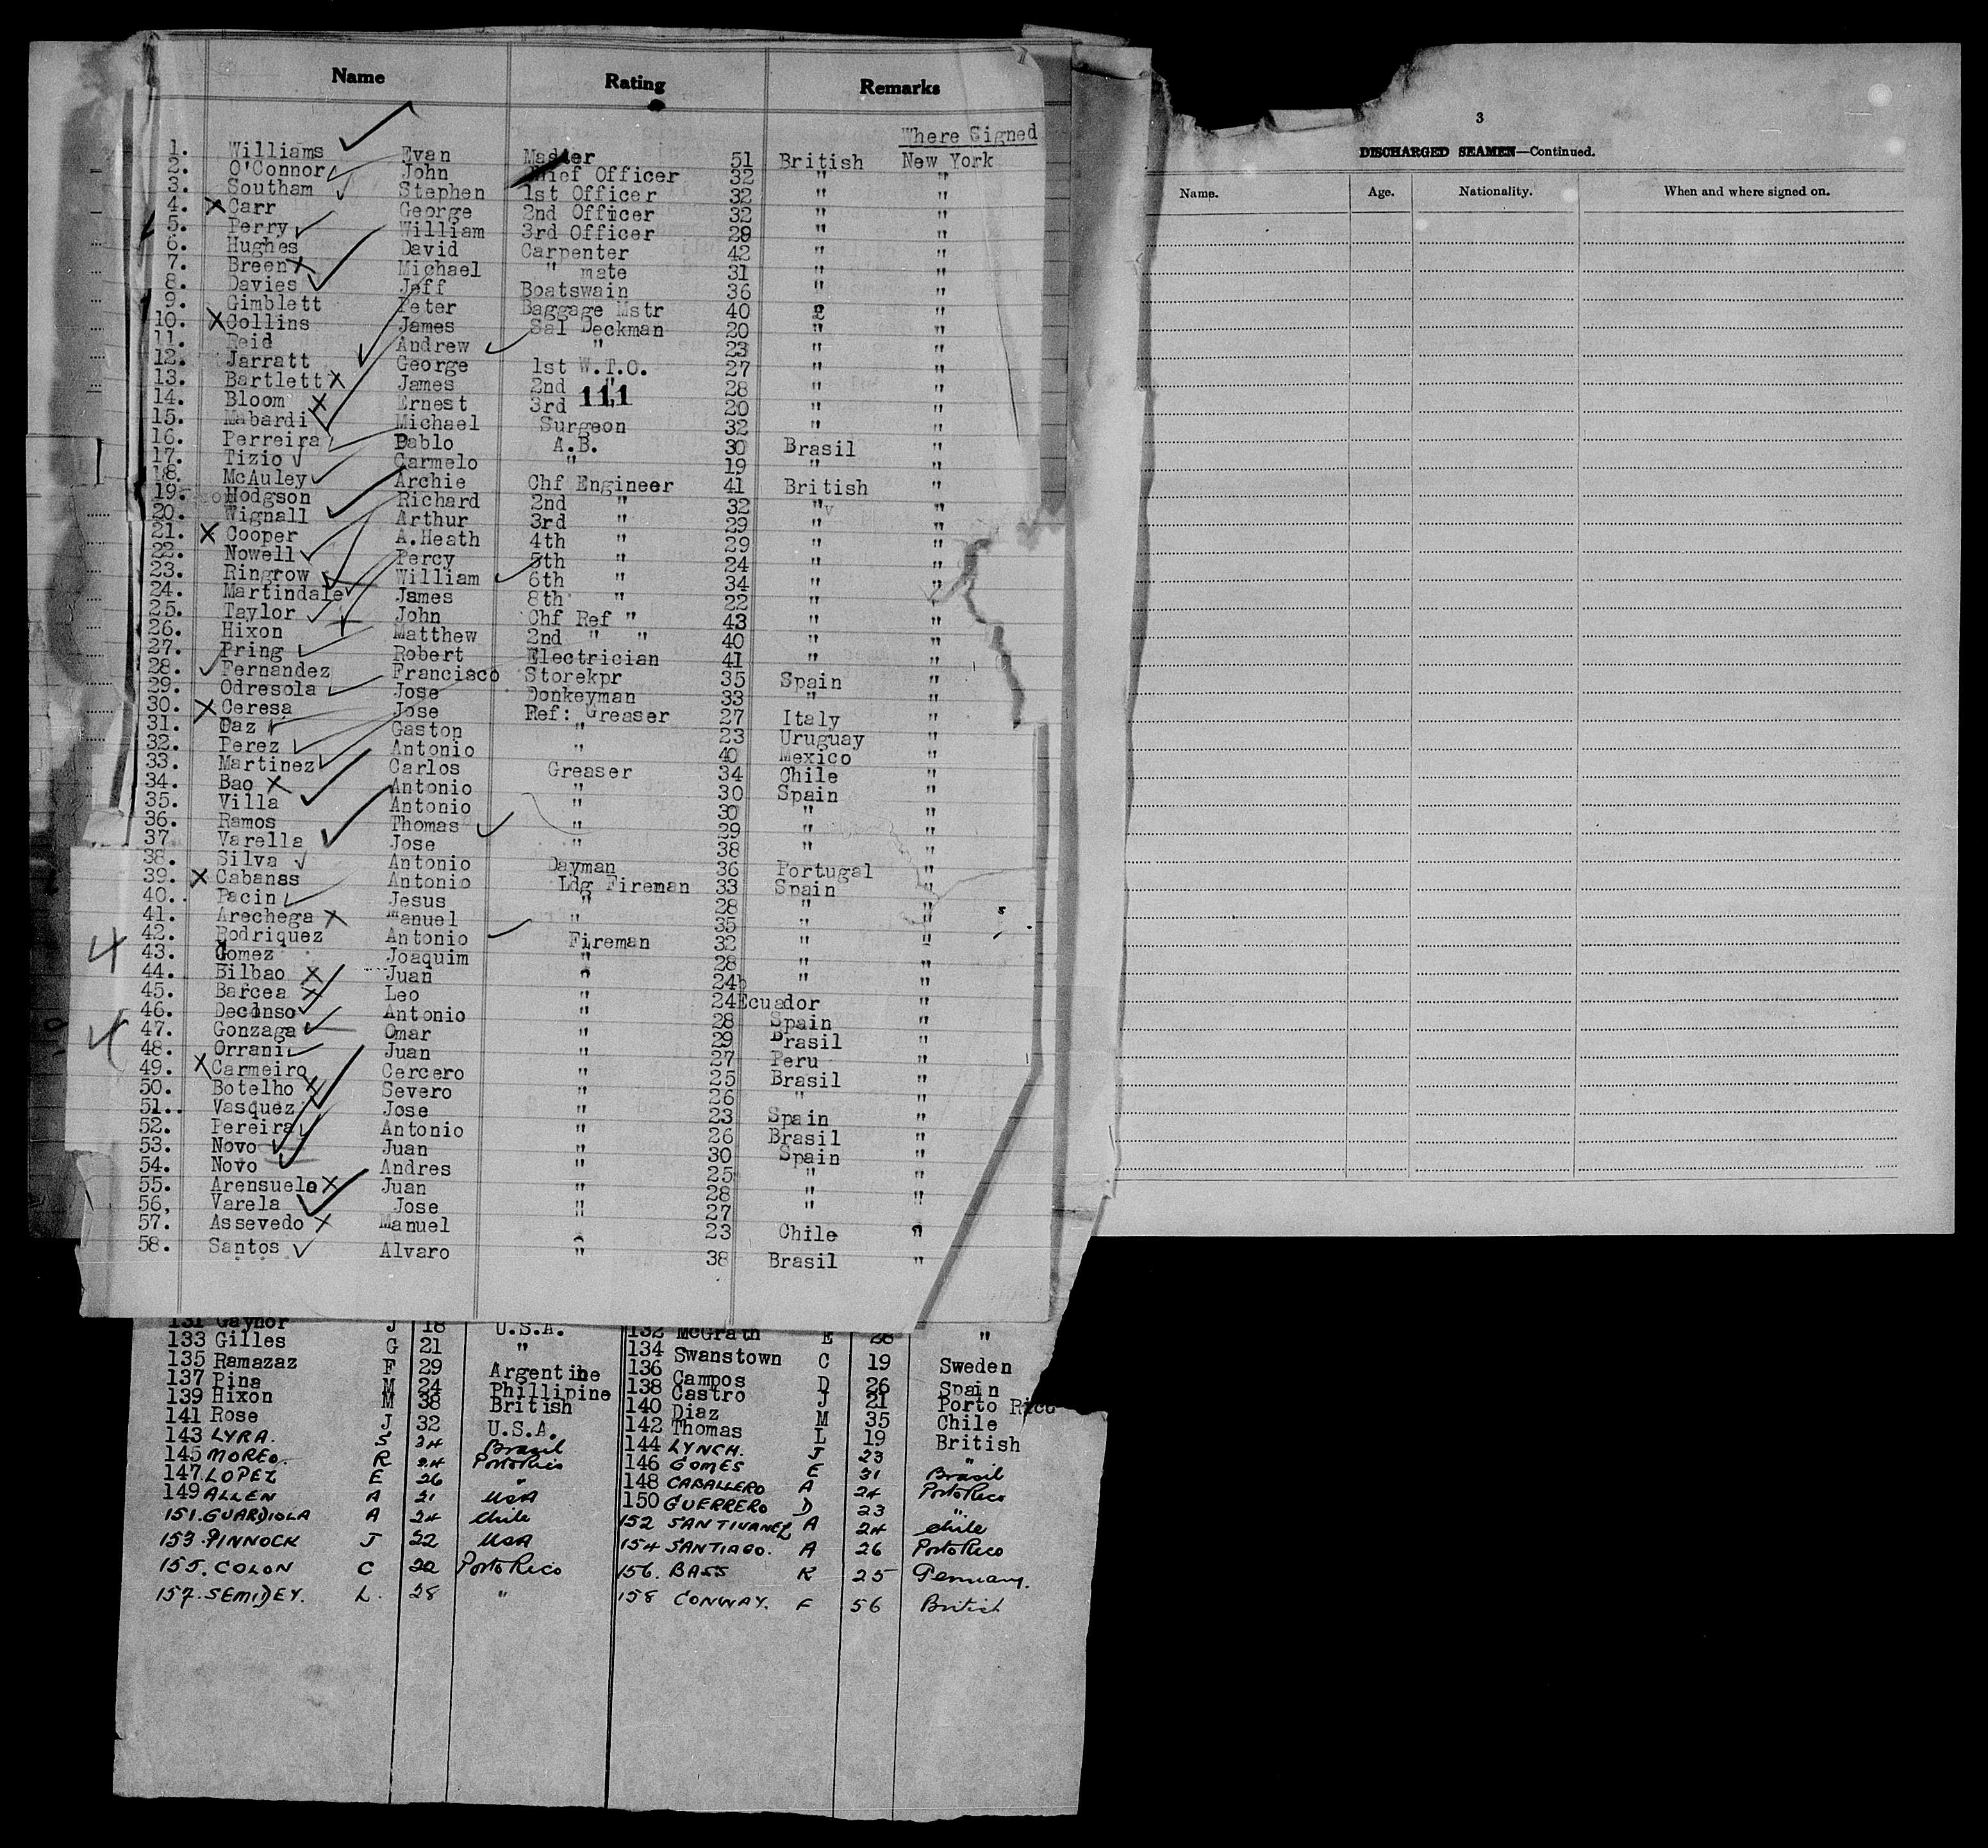 Name Rating Remarks
Where Signed
1. Williams Evan Master 51 British New York
2. O'Connor John Chief Officer 32 " "
3. Southam Stephen 1st Officer 32 " "
4. Carr George 2nd Officer 32 " "
5. Perry William 3rd Officer 29 " "
6. Hughes David Carpenter 42 " "
7. Breen Michael " mate 31 " "
8. Davies Jeff Boatswain 36 " "
9. Gimblett Peter Baggage Mstr 40 "
10. Collins James Sal Deckman 20 " "
11. Reid Andrew " 23 " "
12. Jarratt George 1st W.T.O. 27 " "
13. Bartlett James 2nd " 28 " "
14. Bloom Ernest 3rd 111 20 " "
15. Mabardi Michael Surgeon 32 " "
16. Perreira Pablo A.B. 30 Brasil "
17. Tizio Carmelo " 19 " "
18. McAuley Archie Chf Engineer 41 British "
19. Hodgson Richard 2nd " 32 " "
20. Wignall Arthur 3rd " 29 " "
21. Cooper A.Heath 4th " 29 " "
22. Nowell Percy 5th " 24 " "
23. Ringrow William 6th " 34 " "
24. Martindale James 8th " 22 " "
25. Taylor John Chf Ref " 43 " "
26. Hixon Matthew 2nd " " 40 " "
27. Pring Robert Electrician 41 " "
28. Fernandez Francisco Storekpr 35 Spain "
29. Odresola Jose Donkeyman 33 " "
30. Ceresa Jose Ref: Greaser 27 Italy "
31. Paz Gaston " 23 Uruguay "
32. Perez Antonio " 40 Mexico "
33. Martinez Carlos Greaser 34 Chile "
34. Bao Antonio " 30 Spain "
35. Villa Antonio " 30 " "
36. Ramos Thomas " 29 " "
37 Varella Jose " 38 " "
38. Silva Antonio Dayman 36 Portugal "
39. Cabanas Antonio Ldg Fireman 33 Spain "
40.. Pacin Jesus " 28 " "
41. Arechega Manuel " 35 " "
42. Rodriquez Antonio Fireman 32 " "
4 43. Gomez Joaquim " 28 " "
44. Bilbao Juan " 24 " "
45. Barcea Leo " 24 Ecuador "
46. Deconso Antonio " 28 Spain "
47. Gonzaga Omar " 29 Brasil "
48. Orrani Juan " 27 Peru "
49. Carmeiro Cercero " 25 Brasil "
50. Botelho Severo " 26 " "
51.. Vasquez Jose " 23 Spain "
52. Pereira Antonio " 26 Brasil "
53. Novo Juan " 30 Spain "
54. Novo Andres " 25 " "
55. Arensuela Juan " 28 " "
56, Varela Jose " 27 " "
57. Assevedo Manuel " 23 Chile "
58. Santos Alvaro " 38 Brasil "
131 Gaynor J 18 U.S.A. 132 McGrath E 28 "
133 Gilles G 21 " 134 Swanstown C 19 Sweden
135 Ramazaz F 29 Argentine 136 Campos D 26 Spain
137 Pina M 24 Phillipine 138 Castro J 21 Porto Rico
139 Hixon M 38 British 140 Diaz M 35 Chile
141 Rose J 32 U.S.A. 142 Thomas L 19 British
143 LYRA. S 34 Brazil 144 LYNCH. J 23 "
145 MOREO. R 24 Porto Rico 146 GOMES E 31 Brasil
147 LOPEZ E 26 " 148 CABALLERO A 24 Porto Rico
149 ALLEN A 21 USA 150 GUERRERO D 23 "
151. GUARDIOLA A 24 Chile 152 SANTIVANEZ A 24 Chile
153. PINNOCK J 22 USA 154 SANTIAGO. A 26 Porto Rico
155. COLON C 22 Porto Rico 156. BASS K 25 Germany.
157. SEMIDEY. L. 28 " 158 CONWAY. F 56 British
3
DISCHARGED SEAMEN—Continued.
Name. Age. Nationality. When and where signed on.